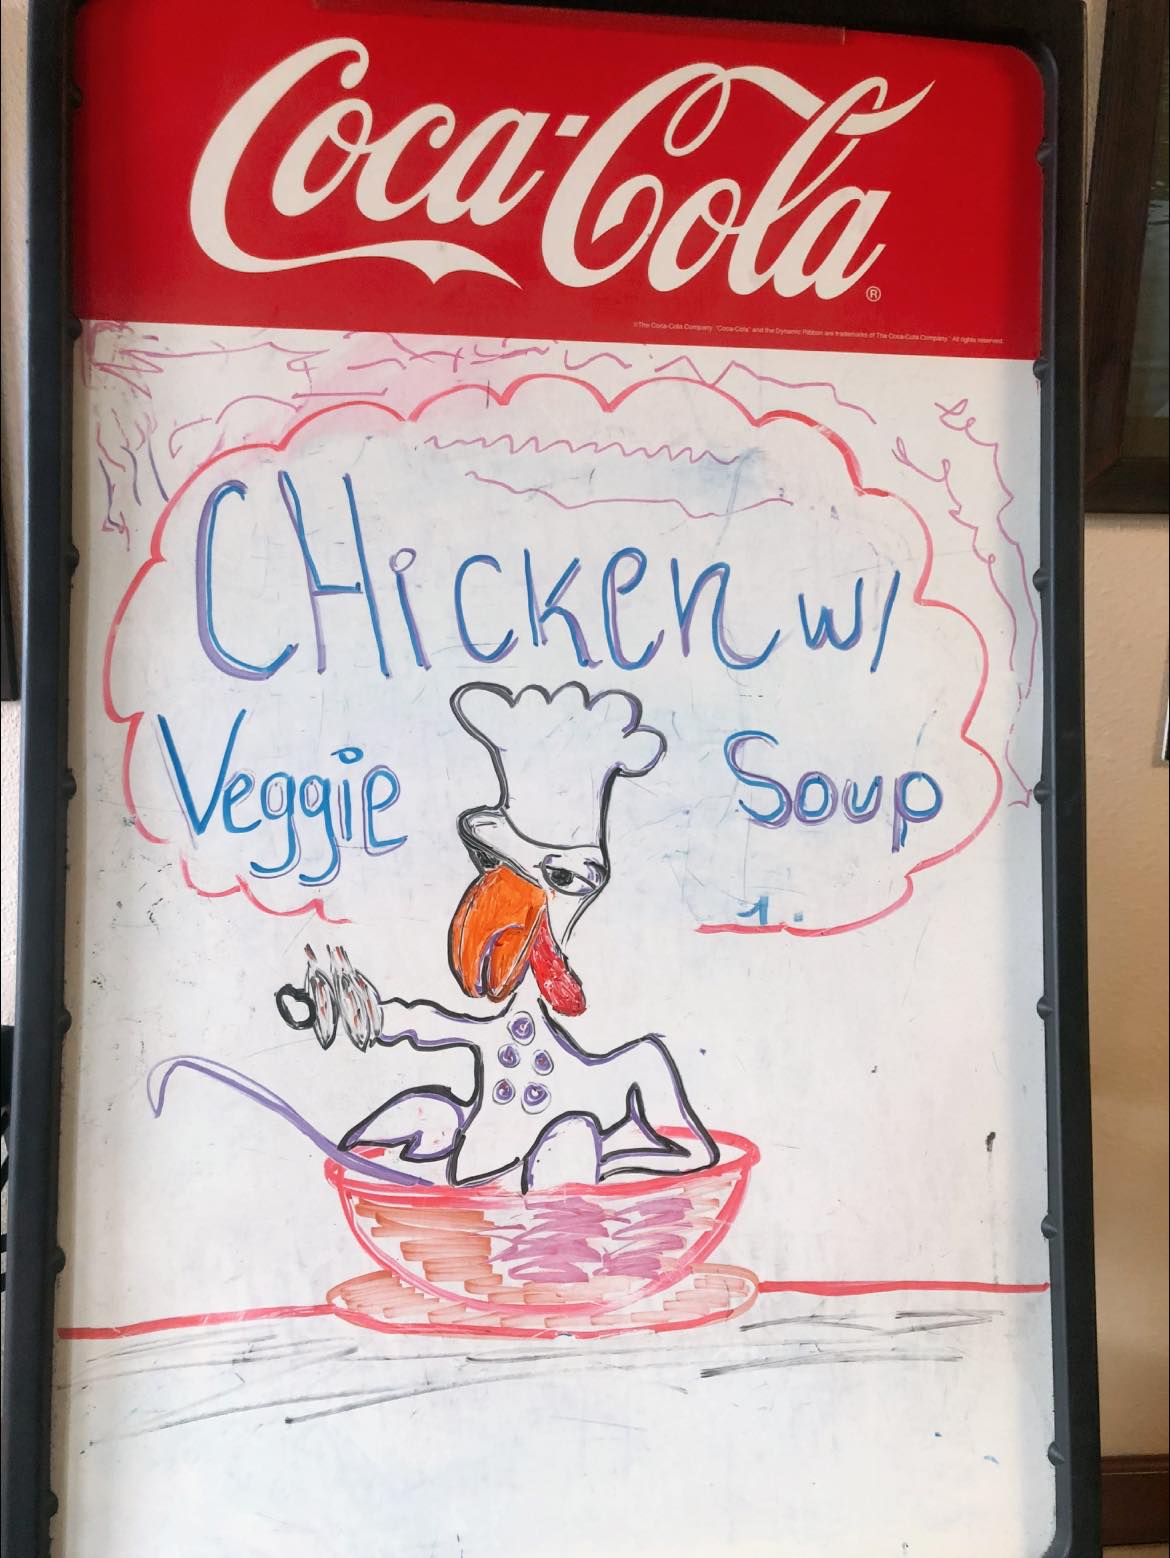 Coca-Cola ®
©The Coca-Cola Company. "Coca-Cola" and the Dynamic Ribbon are trademarks of The Coca-Cola Company. All rights reserved.
CHicken w/
Veggie Soup